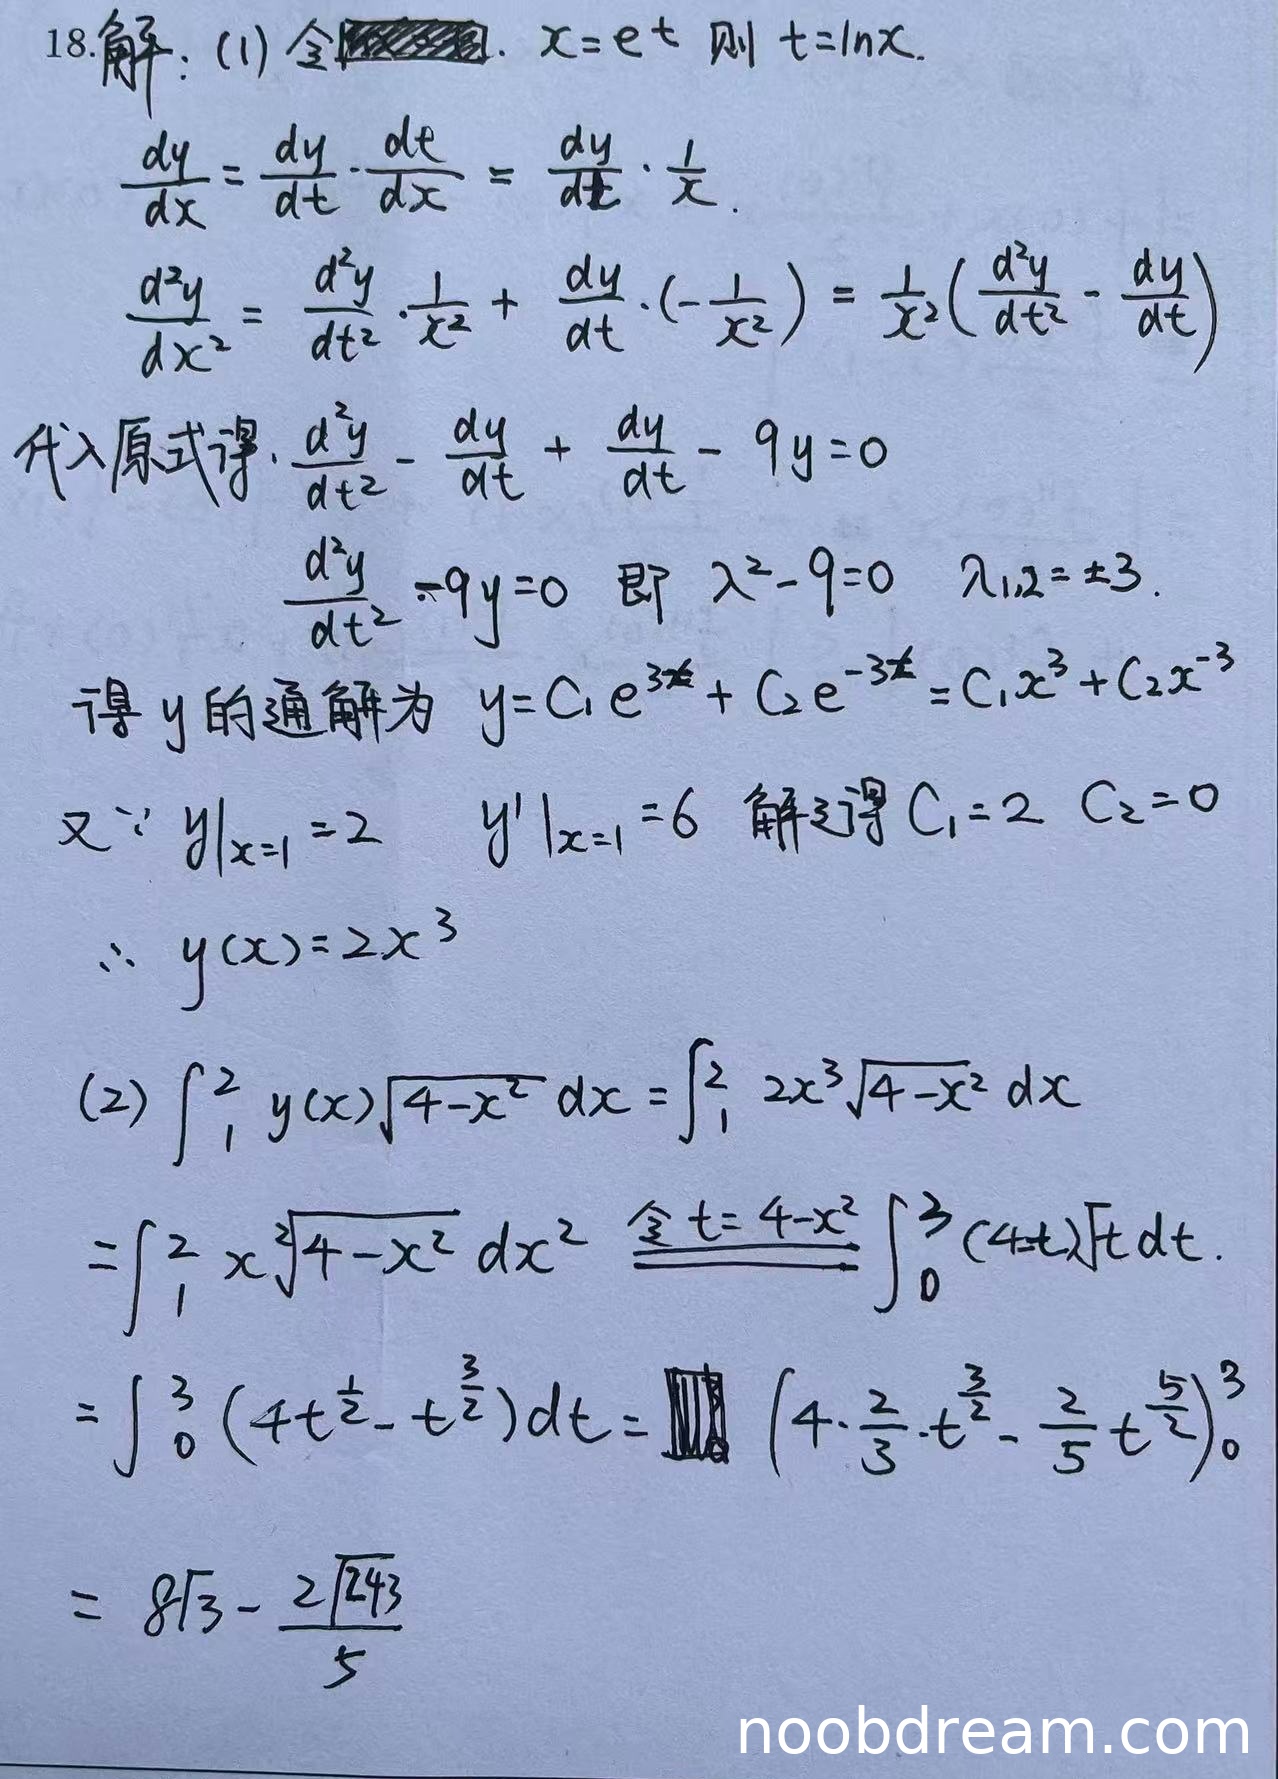 18.解：(1) 令 . x=e^t 则 t=lnx.
dy/dx = dy/dt · dt/dx = dy/dt · 1/x .
d²y/dx² = d²y/dt² · 1/x² + dy/dt · (- 1/x²) = 1/x² ( d²y/dt² - dy/dt )
代入原式得. d²y/dt² - dy/dt + dy/dt - 9y=0
d²y/dt² -9y=0 即 λ²-9=0 λ1,2=±3.
得 y 的通解为 y=C₁e^{3t} + C₂e^{-3t} = C₁x³+C₂x⁻³
又∵ y|x=1 =2 y'|x=1 =6 解之得 C₁=2 C₂=0
∴ y(x)=2x³
(2) ∫₁² y(x)√(4-x²) dx = ∫₁² 2x³√(4-x²) dx
=∫₁² x²√(4-x²) dx² 令 t=4-x² ∫₀³ (4-t)√t dt.
=∫₀³ (4t^{1/2} - t^{3/2})dt = (4·2/3·t^{3/2} - 2/5 t^{5/2})₀³
= 8√3 - 2√243/5
noobdream.com